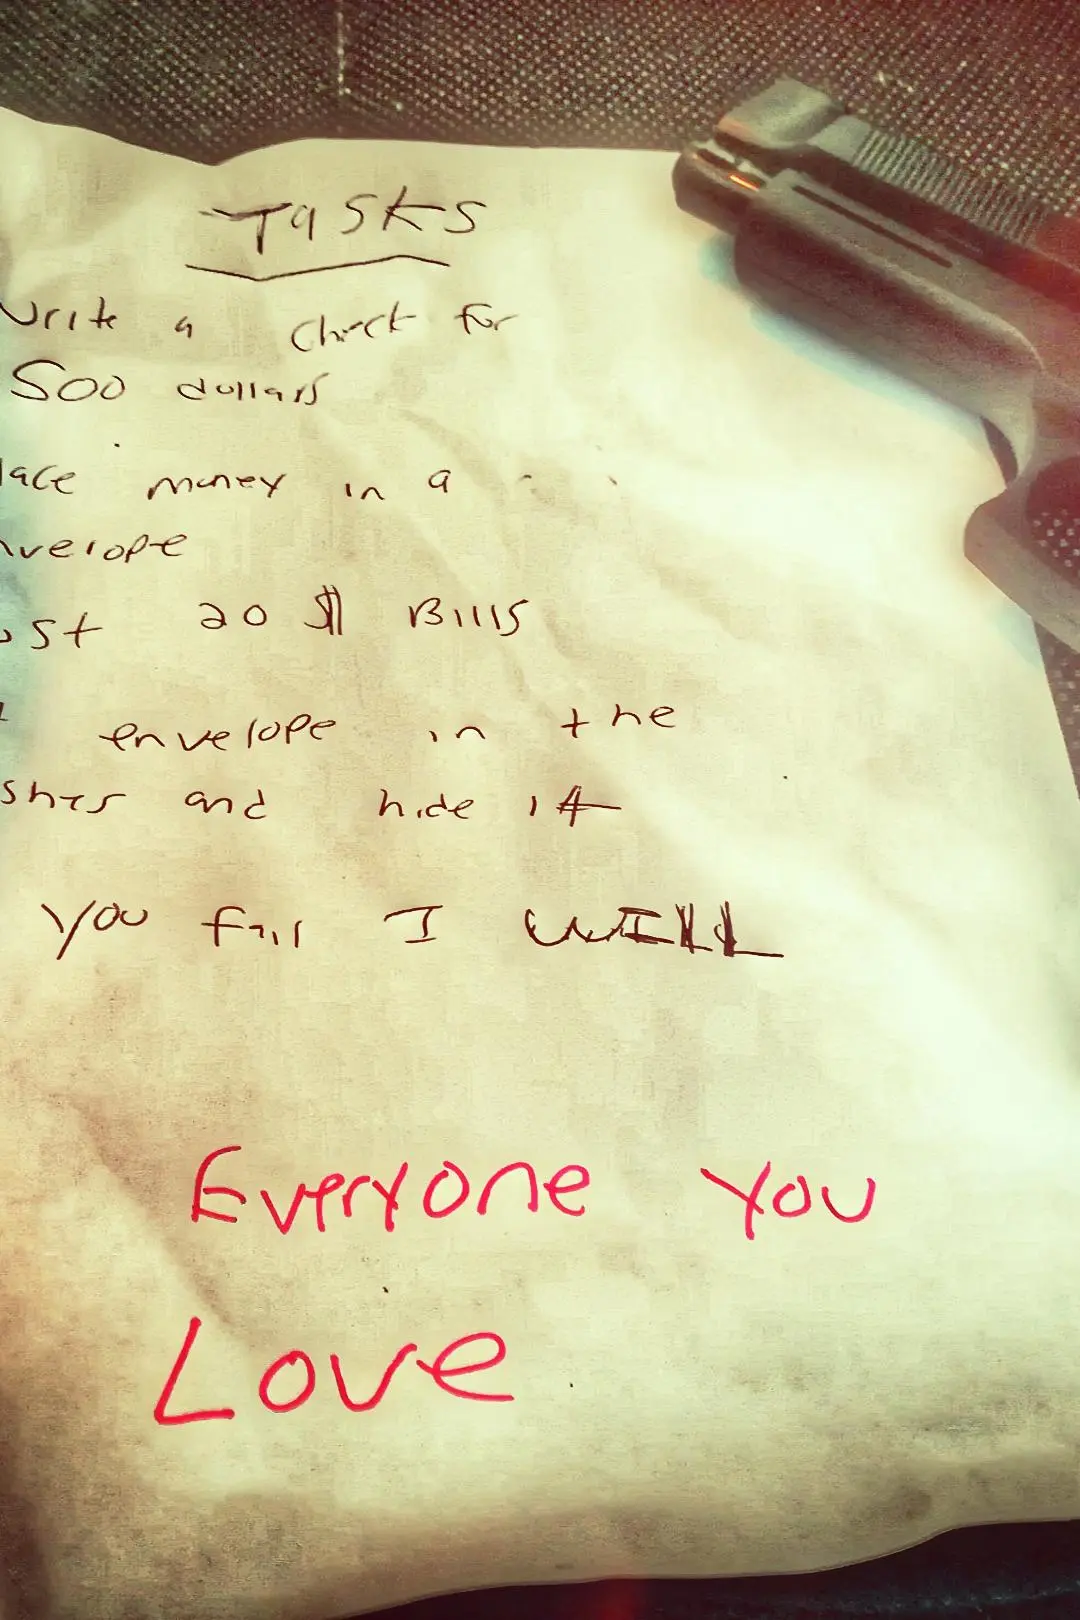 Tasks
Write a check for
500 dollars
lace money in a
nvelope
ust 20 $ Bills
envelope in the
shes and hide it
you fail I WILL
Everyone you
Love